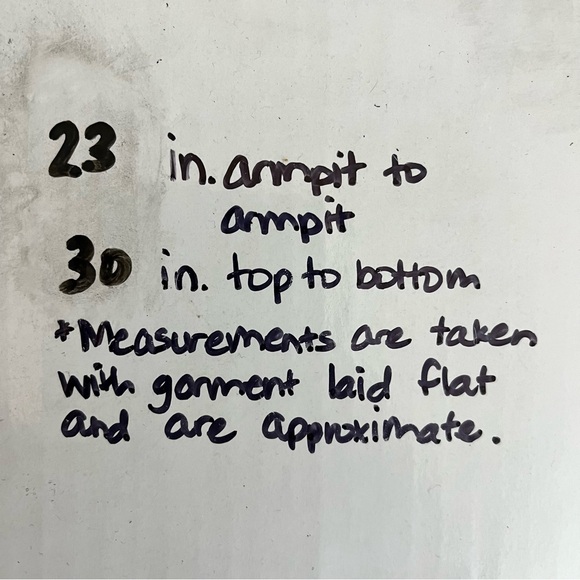 23 in. armpit to
armpit
30 in. top to bottom
*Measurements are taken
with garment laid flat
and are approximate.